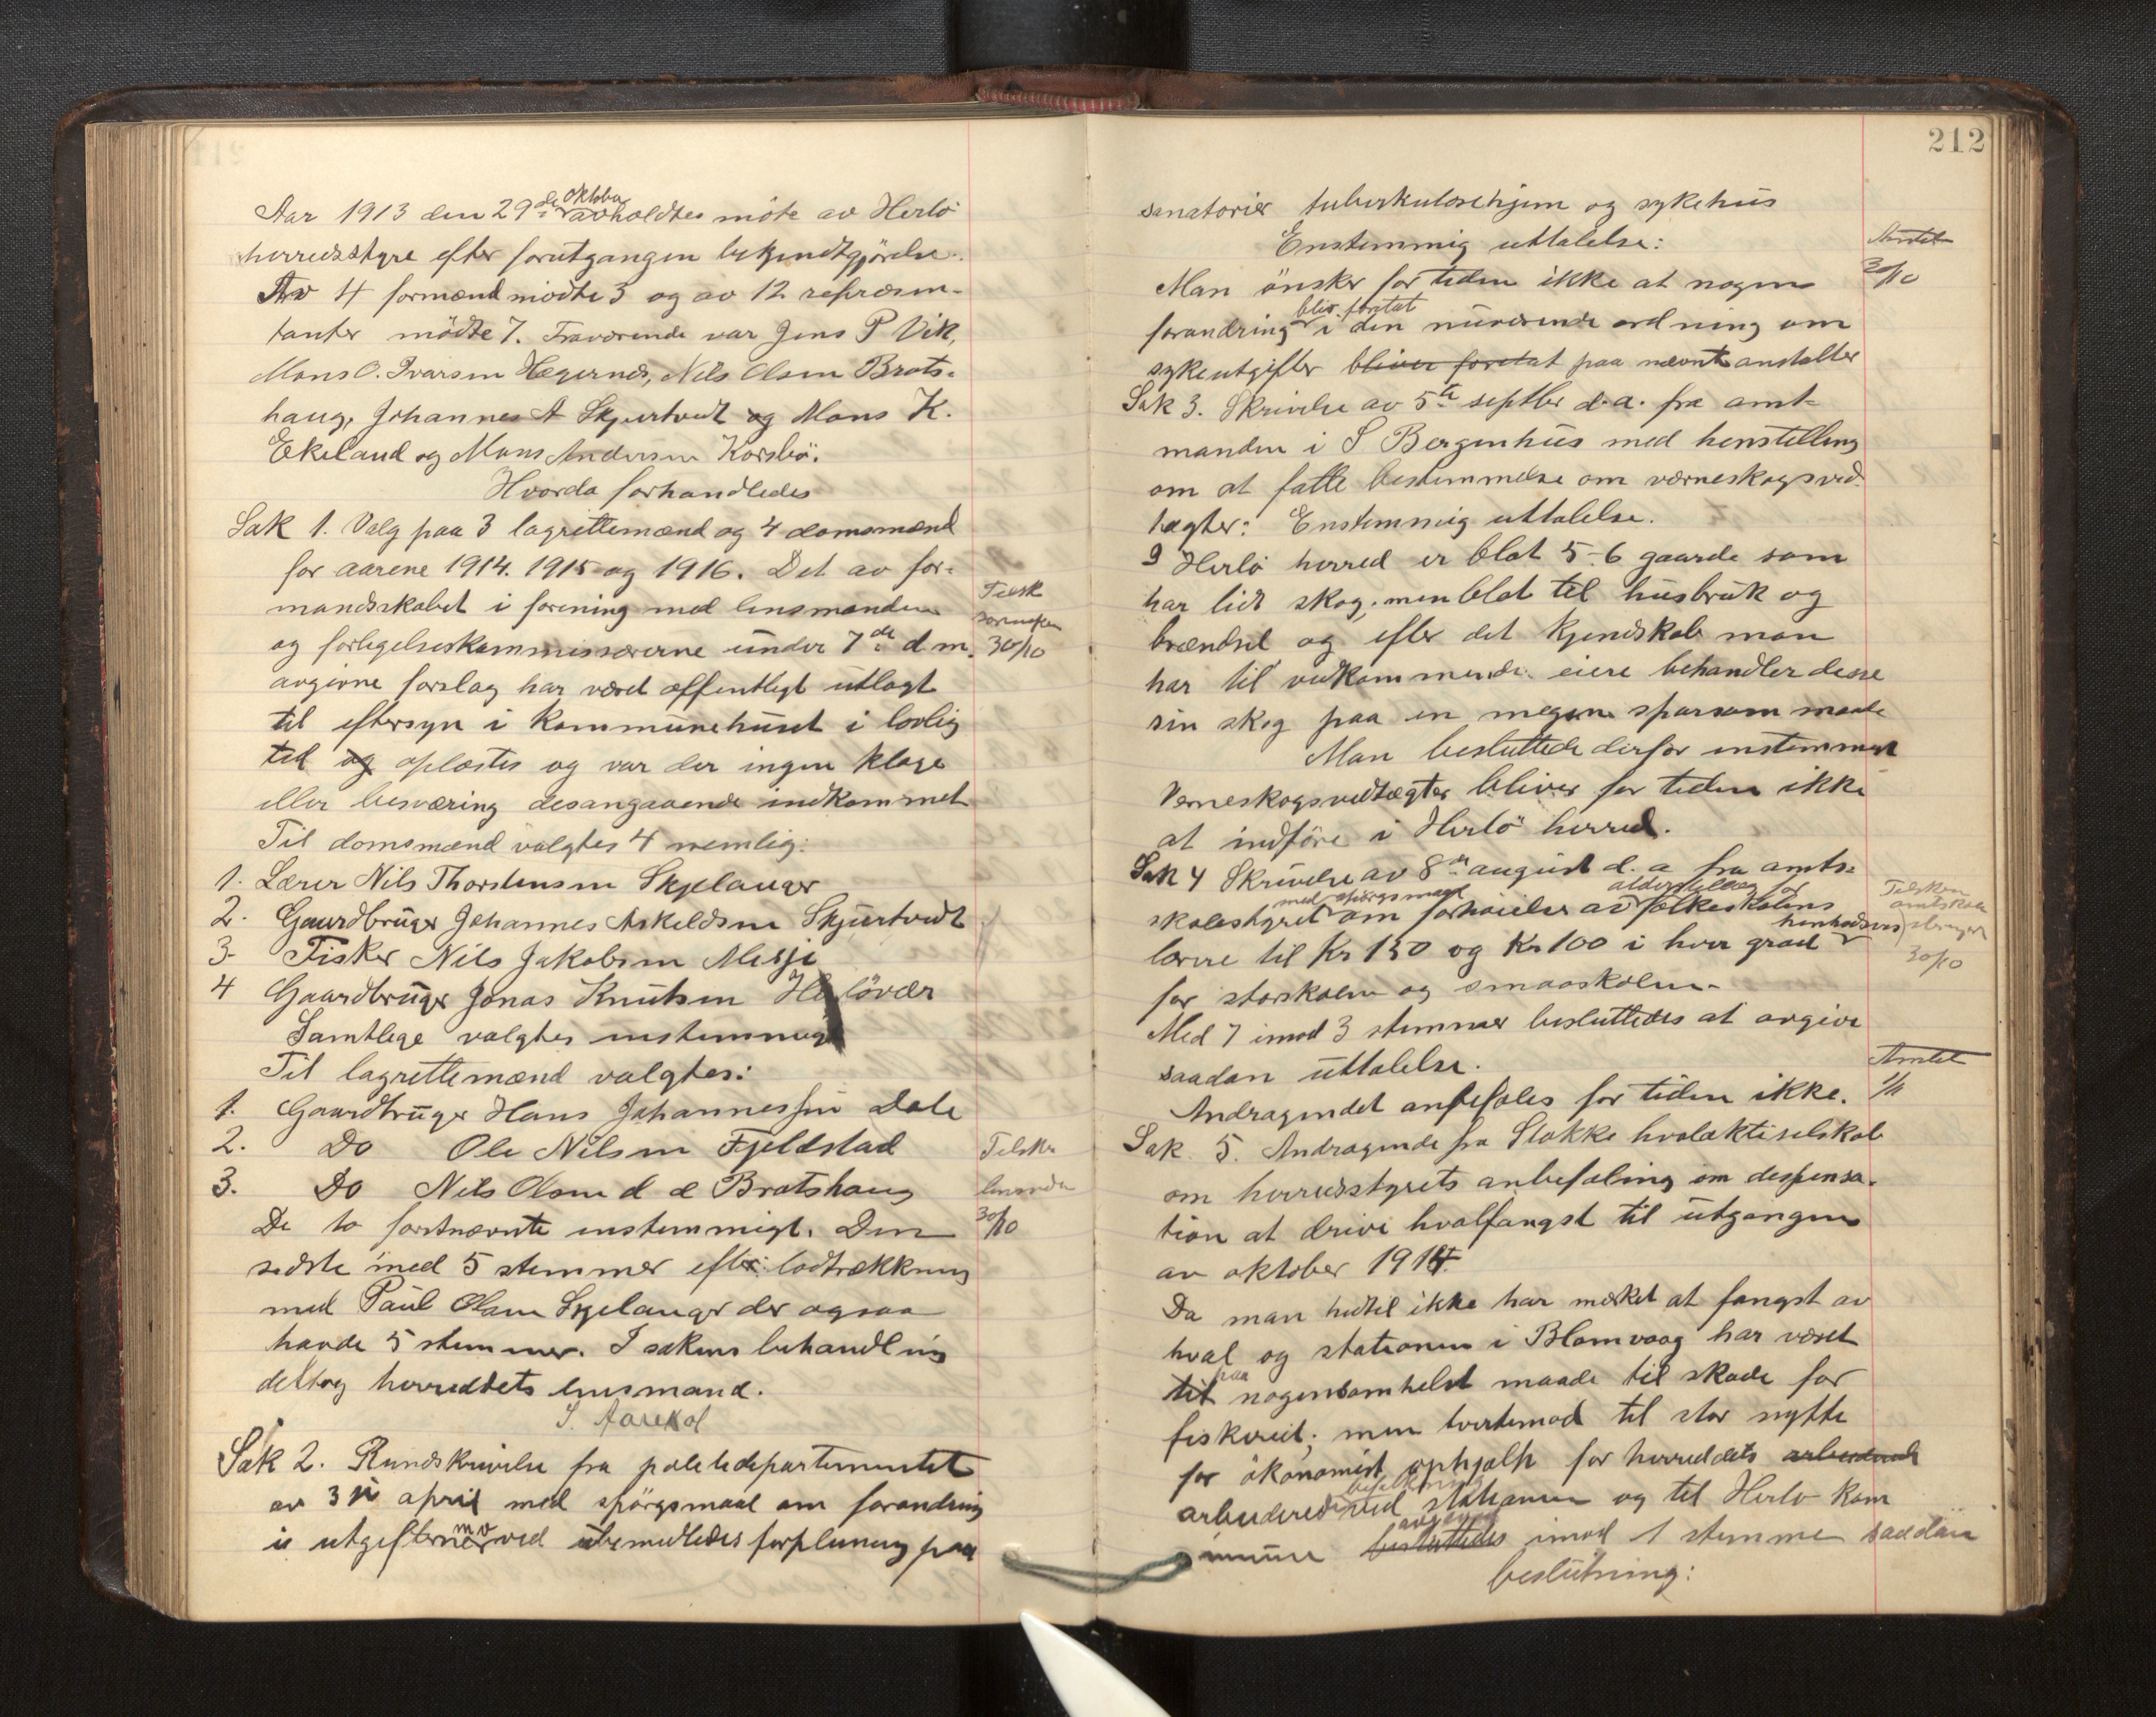 Aar 1913 den 29de oktober avholdtes möte av Herlö
herredsstyre efter forutgangen bekjendtgjörelse.
Av 4 formænd mödte 3 og av 12 repræsen-
tanter mödte 7. Fraværende var Jens P Vik,
Mons O. Ivarsen Hægernes, Nils Olsen Brats-
haug, Johannes A Skjertvedt og Mons K.
Ekeland og Mons Andersen Korsbö.
Hvorda forhandledes
Sak 1. Valg paa 3 lagrettemænd og 4 domsmænd
for aarene 1914. 1915 og 1916. Det av for-
mandskabet i forening med lensmanden
og forligelseskommissærerne under 7de d.m.
avgivne forslag har været offentligt utlagt
til eftersyn i kommunehuset i lovlig
tid og oplæstes og var der ingen klage
eller besværing desangaaende indkommet
Til domsmænd valgtes 4 nemlig:
1. Lærer Nils Thorstensen Skjelanger
2. Gaardbruger Johannes Askeldsen Skjertvedt
3. Fisker Nils Jakobsen Misje
4 Gaardbruger Jonas Knutsen Herlövær
Samtlege valgtes enstemmigt
Til lagrettemænd valgtes:
1. Gaardbruger Hans Johannessen Dale
2. Do Ole Nilsen Fjeldstad
3. Do Nils Olsen d e Bratshaug
De to förstnævnte enstemmigt. Den
sidste med 5 stemmer efter lodtrækkning
med Paul Olsen Skjelanger der ogsaa
havde 5 stemmer. I sakens behandling
deltog herreddets lensmand.
Sak 2. Rundskrivelse fra
av 3 april med spörgsmaal om forandring
i utgifterne mv ved ubemidledes forpleining paa
30/10
Telskr
lensmden
30/10
212
sanatorier tuberkulosehjem og sykehus
Enstemmig uttalelse:
Man önsker for tiden ikke at nogen
forandring bliv. foretat i den nuværende ordning om
sykeutgifter bliver foretat paa nævnte anstalter
Sak 3. Skrivelse av 5te septbr d.a. fra amt-
manden i S Bergenhus med henstelling
om at fatte bestemmelse om værneskogsved-
tægter: Enstemmig uttalelse.
I Herlö herred er blot 5-6 gaarde som
har lidt skog, men blot til husbruk og
brændsel og efter det kjendskab man
har til vedkommende eiere behandler desse
sin skog paa en megen sparsom maade
Man besluttede derfor enstemmet
Verneskogsvedtægter bliver for tiden ikke
at indföre i Herlö herred.
Sak 4 Skrivelse av 8de august d.a fra amts-
skolestyret med spörgsmaal om forhöielse av alderstillæg for folkeskolens
lærere til Kr 150 og Kr 100 i hver grad henholdsvis
for storskolen og smaaskolen.
Med 7 imod 3 stemmer besluttedes at avgive
saadan uttalelse.
Andragendet anbefales for tiden ikke.
Sak 5. Andragende fra Stokke hvalaktieselskab
om herredsstyrets anbefaling om despensa-
tion at drive hvalfangst til utgangen
av oktober 1914.
Da man hidtil ikke har merket at fangst av
hval og stationen i Blomvaag har været
til paa nogensomhelst maade til skade for
fiskeriet, men tvertemod til stor nytte
for ökonomisk ophjælp for herreddets arbeidende
arbeiderbefolkning ved stationen og til Herlö kom
mune besluttedes avgaves imod 1 stemme saadan
beslutning:
Amtet
30/10
Telskr
amtskole
styret
30/10
Amtet